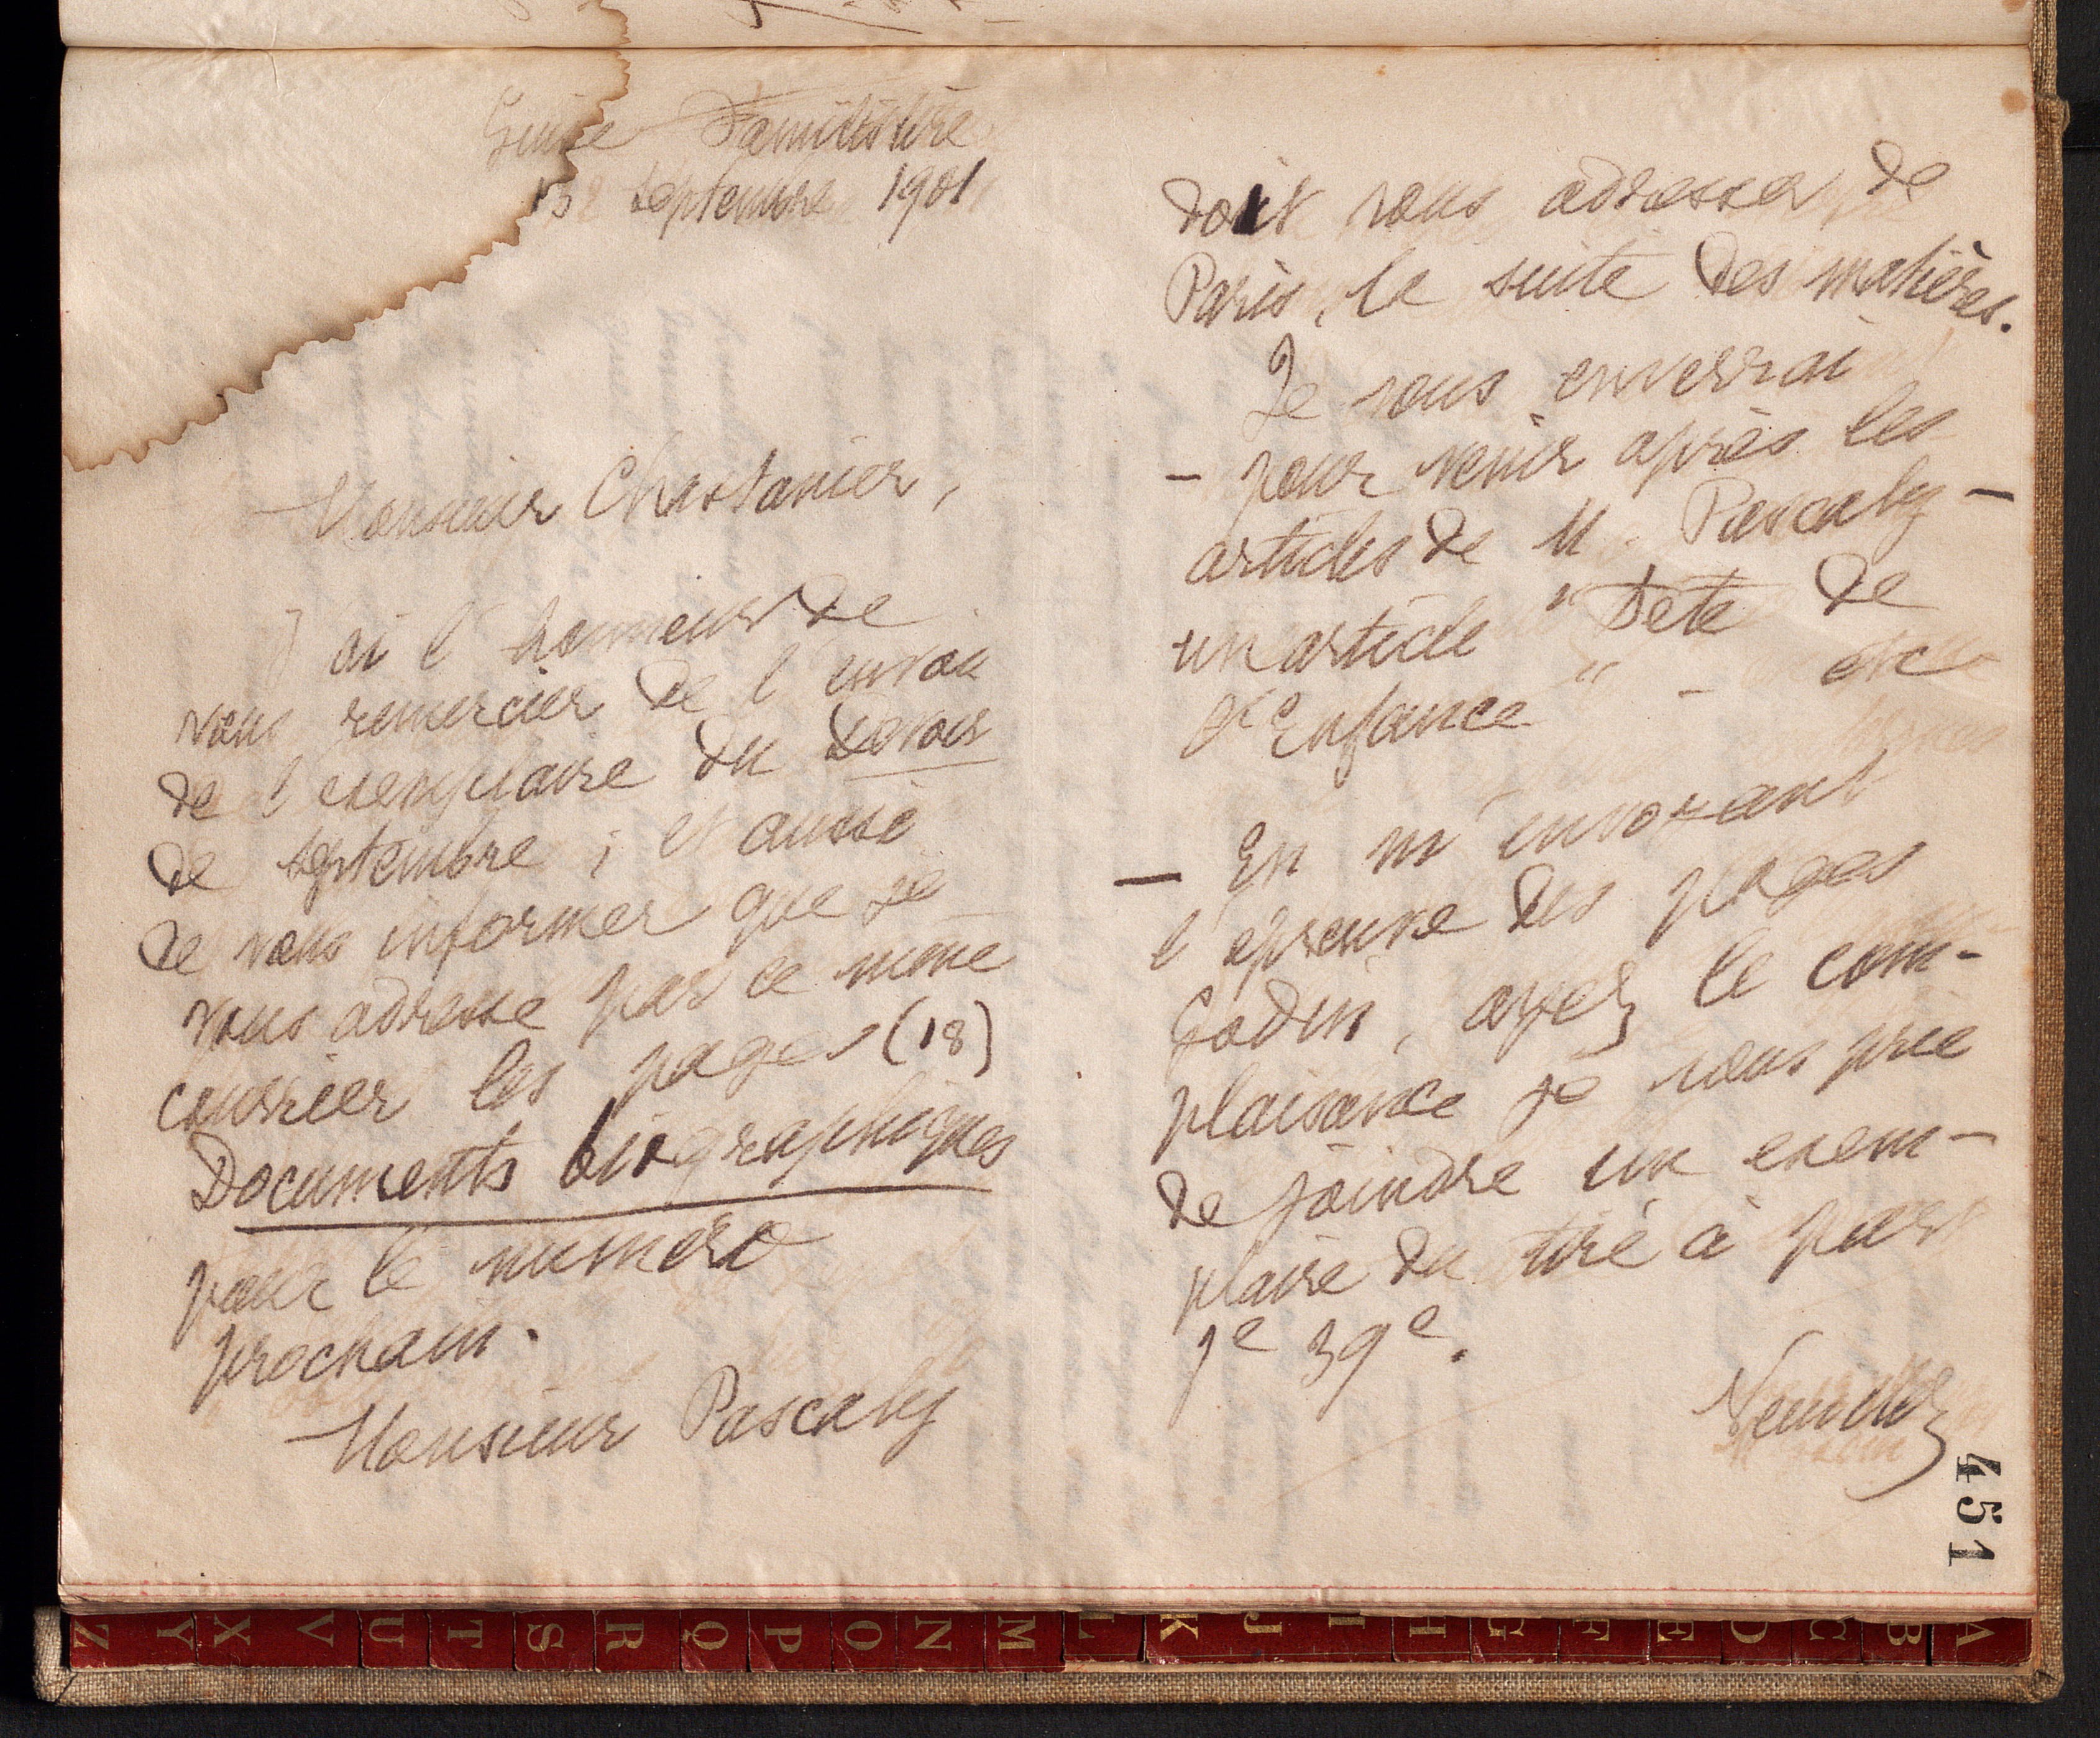 Guise Familistère
13 septembre 1901
Monsieur Chastanier,
J'ai l'honneur de
vous remercier de l'envoi
de l'exemplaire du Devoir
de septembre ; et aussi
de vous informer que je
vous adresse par ce même
courrier les pages (18)
Documents biographiques
pour le numéro
prochain.
Monsieur Pascaly
doit vous adresser de
Paris, la suite des matières.
Je vous enverrai
- pour venir après les
articles de M. Pascaly -
un article "Fête de
l'Enfance" - etc
- En m'envoyant
l'épreuve des pages
Godin, ayez la com-
plaisance je vous prie
de joindre un exem-
plaire du tiré à part
fe 39e.
Veuillez
451
Z Y X V U T S R Q P O N M L K J I H G F E D C B A